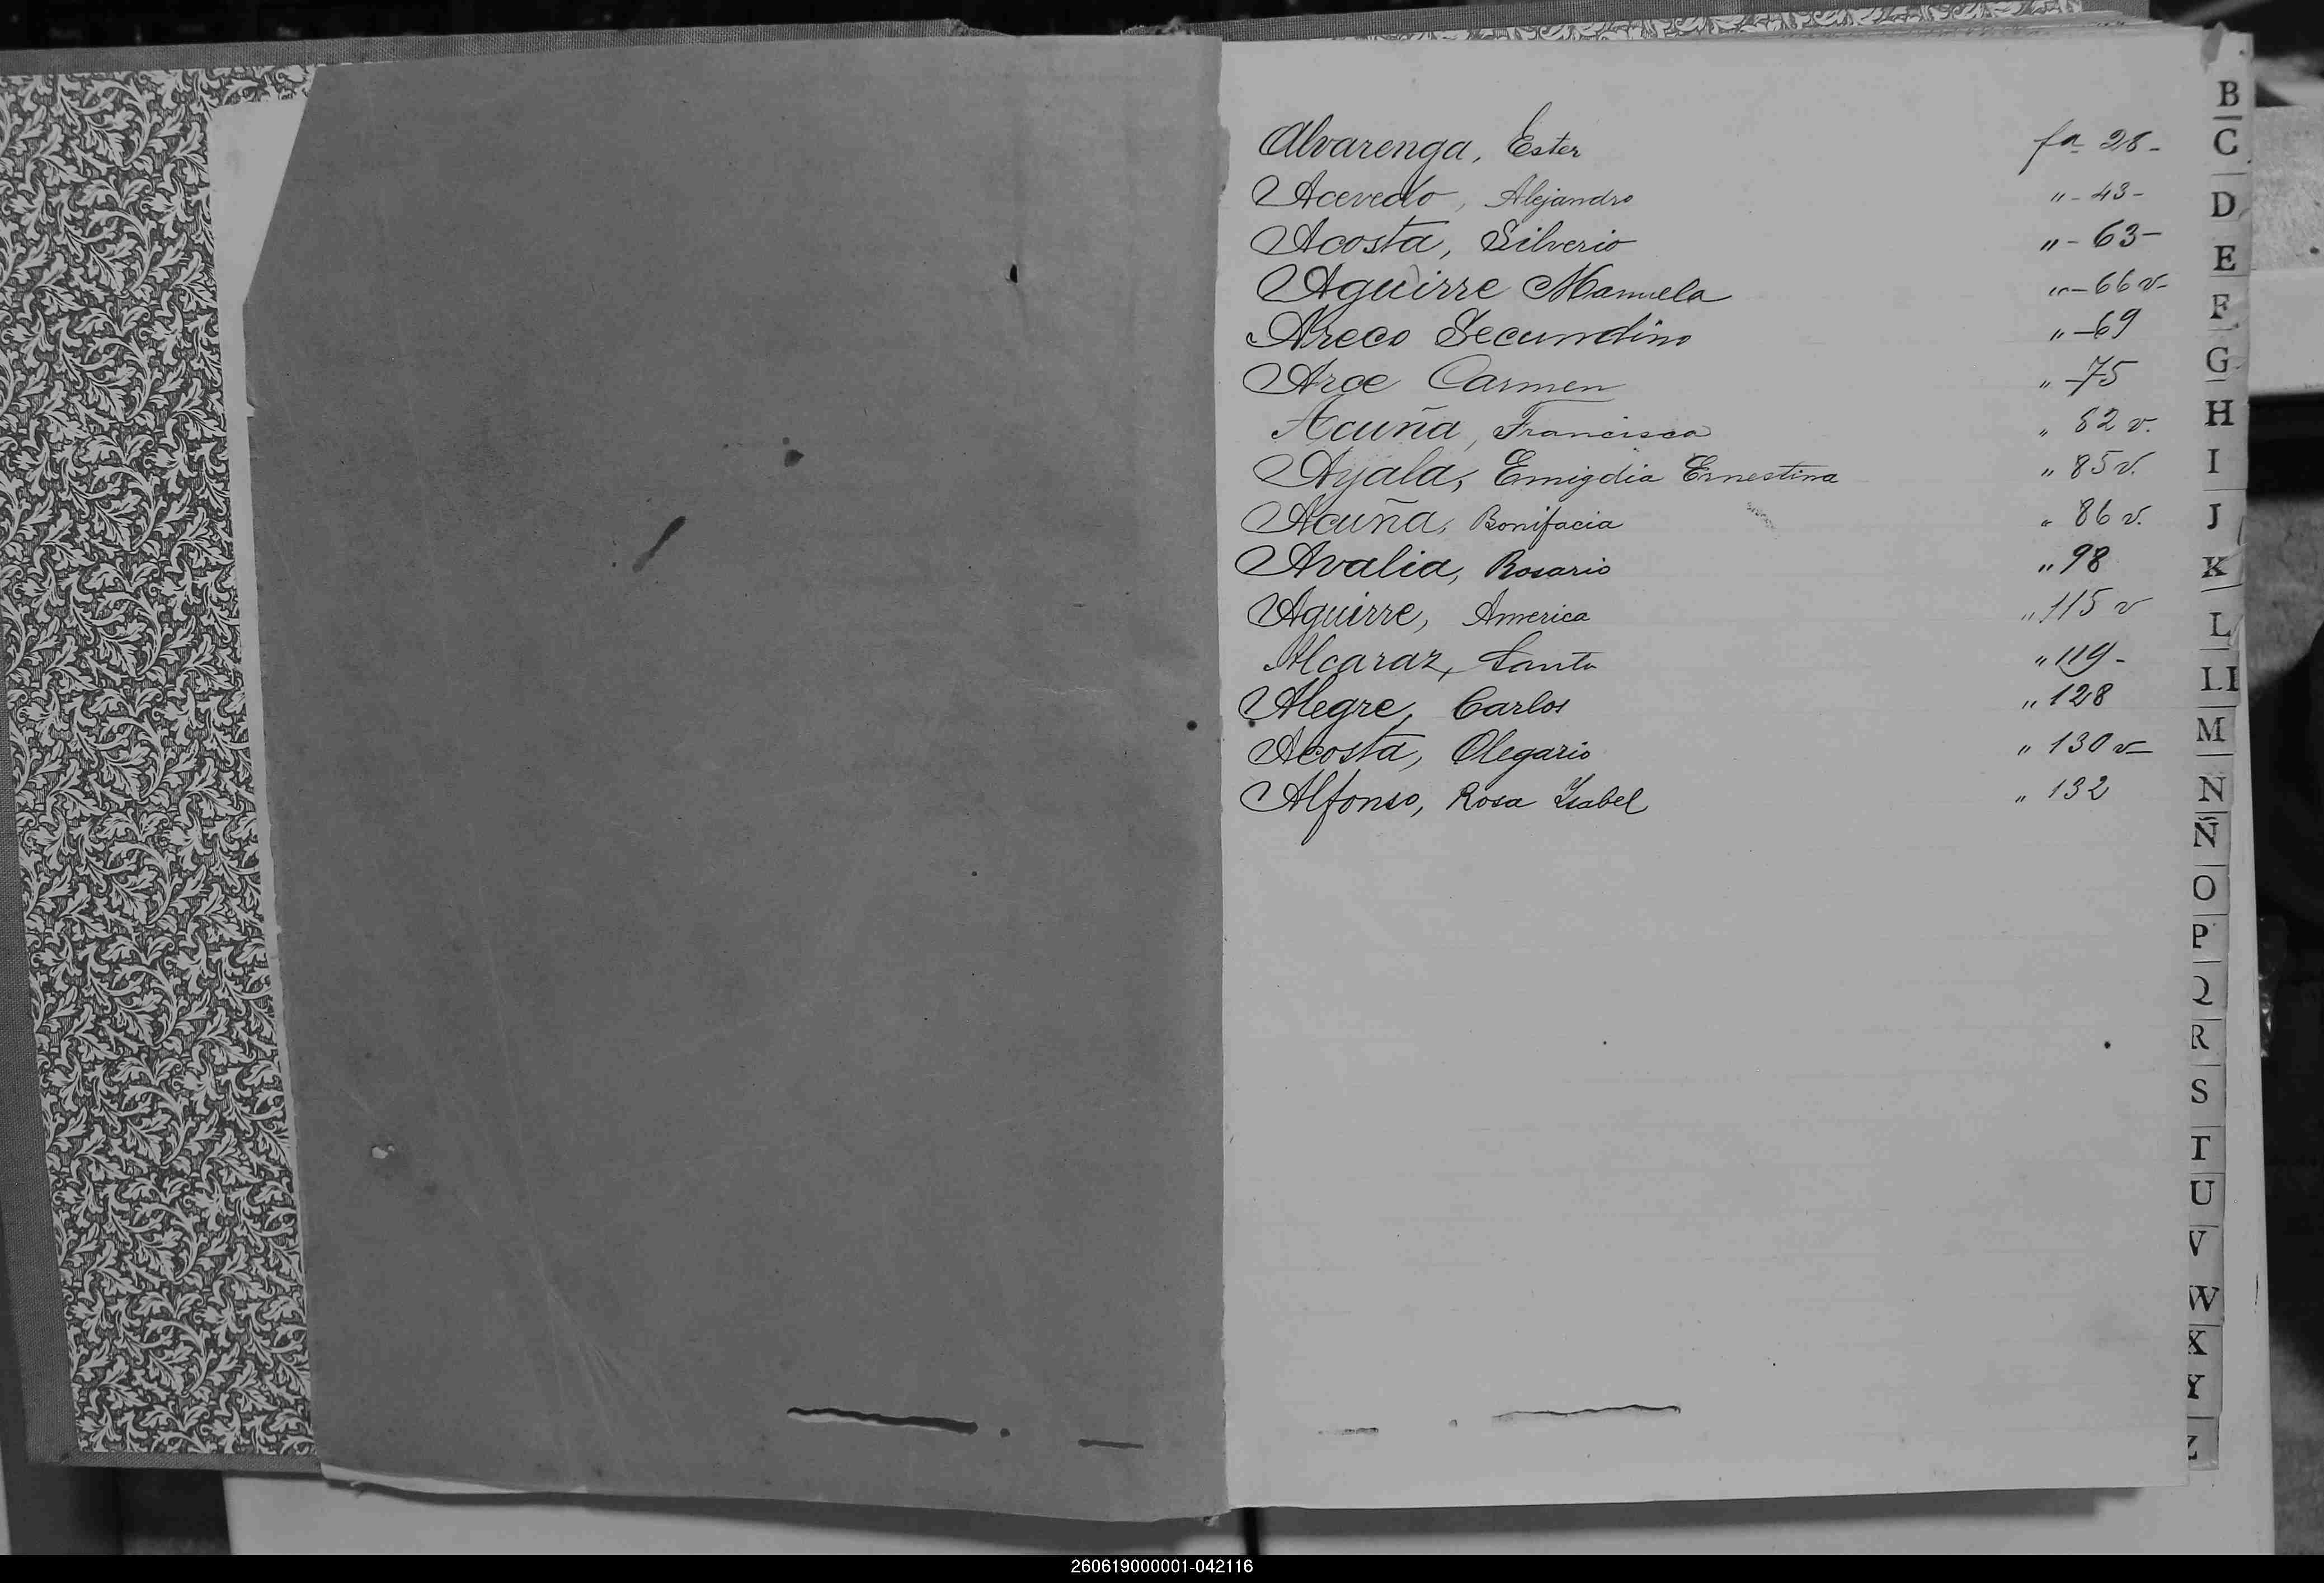 Alvarenga, Ester fa 28-
Acevedo, Alejandro " - 43 -
Acosta, Silverio " - 63 -
Aguirre Manuela " - 66 v-
Areco Secundino " - 69
Arce Carmen " - 75
Acuña, Francisca " 82 v.
Ayala, Emigdia Ernestina " 85 v.
Acuña, Bonifacia " 86 v.
Avalia, Rosario " 98
Aguirre, America " 115 v
Alcaraz, " 119 -
Alegre, Carlos " 128
Acosta, Olegario " 130 v-
Alfonso, Rosa Ysabel " 132
B
C
D
E
F
G
H
I
J
K
L
Ll
M
N
Ñ
O
P
Q
R
S
T
U
V
W
X
Y
Z
260619000001-042116